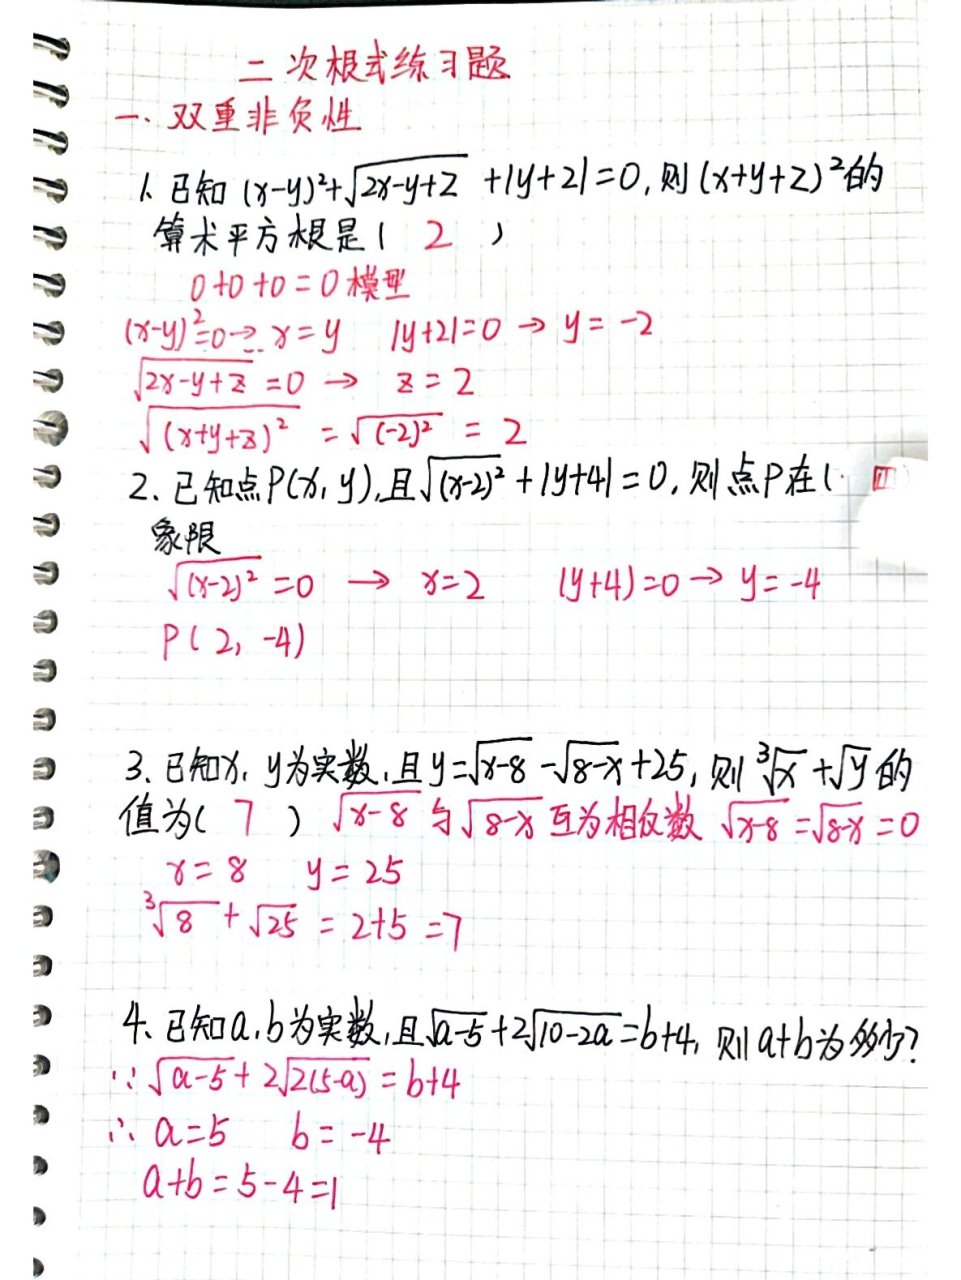 二次根式练习题
一、双重非负性
1、已知 (x-y)²+√(2x-y+z) +|y+2|=0,则(x+y+z)²的
算术平方根是( 2 )
0+0+0=0模型
(x-y)²=0→x=y |y+2|=0→y=-2
√(2x-y+z)=0→ z=2
√((x+y+z)²) =√((-2)²) = 2
2、已知点P(x,y),且√((x-2)²)+|y+4|=0,则点P在( 四
象限
√((x-2)²)=0 → x=2 |y+4|=0→y=-4
P(2,-4)
3、已知x,y为实数,且y=√(x-8)-√(8-x)+25,则³√x+√y的
值为( 7 ) √(x-8)与√(8-x)互为相反数 √(x-8)=√(8-x)=0
x=8 y=25
³√8+√25=2+5=7
4、已知a,b为实数,且√(a-5)+2√(10-2a)=b+4,则a+b为多少?
∵√(a-5)+2√(2(5-a))=b+4
∴a=5 b=-4
a+b=5-4=1